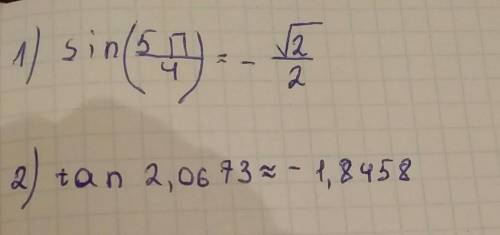 1) sin(5π/4) = - √2/2
2) tan 2,0673 ≈ - 1,8458